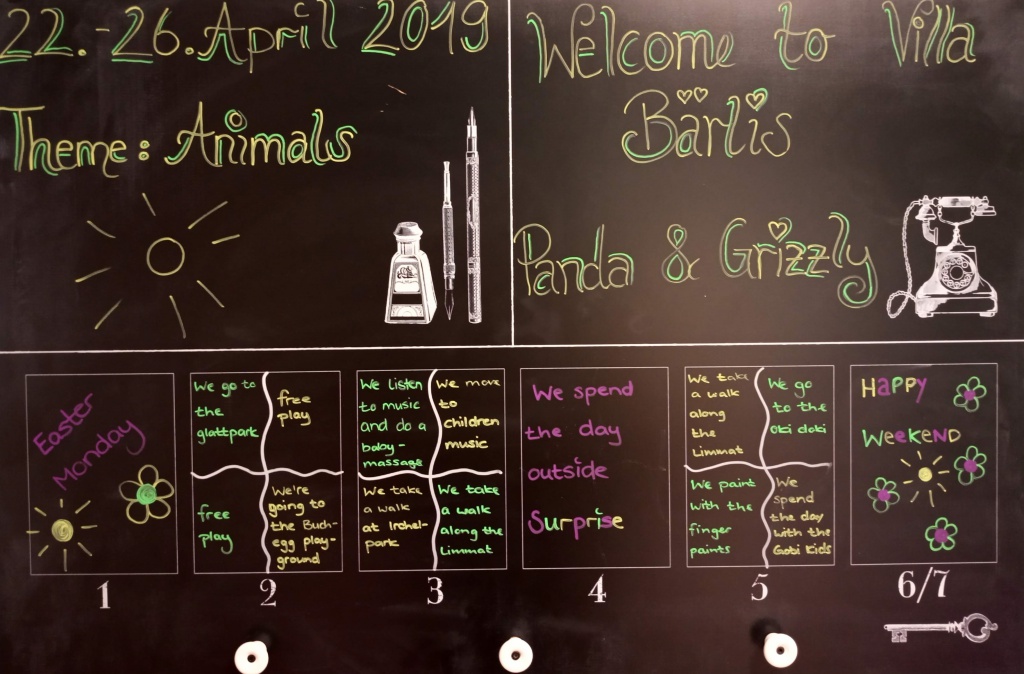 22.-26. April 2019
Theme: Animals
Welcome to Villa
Bärlis
Panda & Grizzly
Easter
Monday
1
We go to
the
glattpark
free
play
free
play
We're
going to
the Buch-
egg play-
ground
2
We listen
to music
and do a
baby-
massage
We move
to
children
music
We take
a walk
at Irchel-
park
We take
a walk
along the
Limmat
3
We spend
the day
outside
Surprise
4
We take
a walk
along
the
Limmat
We go
to the
Oki doki
We paint
with the
finger
paints
We
spend
the day
with the
Gobi Kids
5
Happy
Weekend
6/7